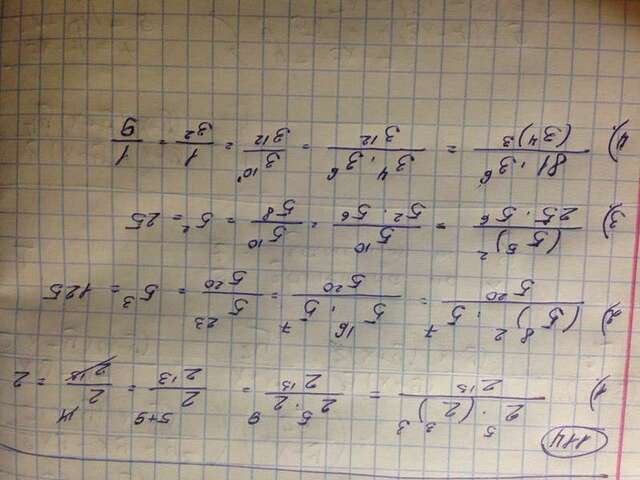 114
1) \frac{2^5 · (2^3)^3}{2^{13}} = \frac{2^5 · 2^9}{2^{13}} = \frac{2^{5+9}}{2^{13}} = \frac{2^{14}}{2^{13}} = 2
2) \frac{(5^8)^2 · 5^7}{5^{20}} = \frac{5^{16} · 5^7}{5^{20}} = \frac{5^{23}}{5^{20}} = 5^3 = 125
3) \frac{(5^5)^2}{25 · 5^6} = \frac{5^{10}}{5^2 · 5^6} = \frac{5^{10}}{5^8} = 5^2 = 25
4) \frac{81 · 3^6}{(3^4)^3} = \frac{3^4 · 3^6}{3^{12}} = \frac{3^{10}}{3^{12}} = \frac{1}{3^2} = \frac{1}{9}